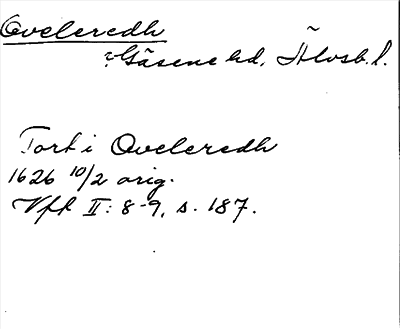 Qveleredh
? Gäsene hd, Älvsb. l.
Torp i Qveleredh
1626 10/2 orig.
Vft II: 8-9, s. 187.